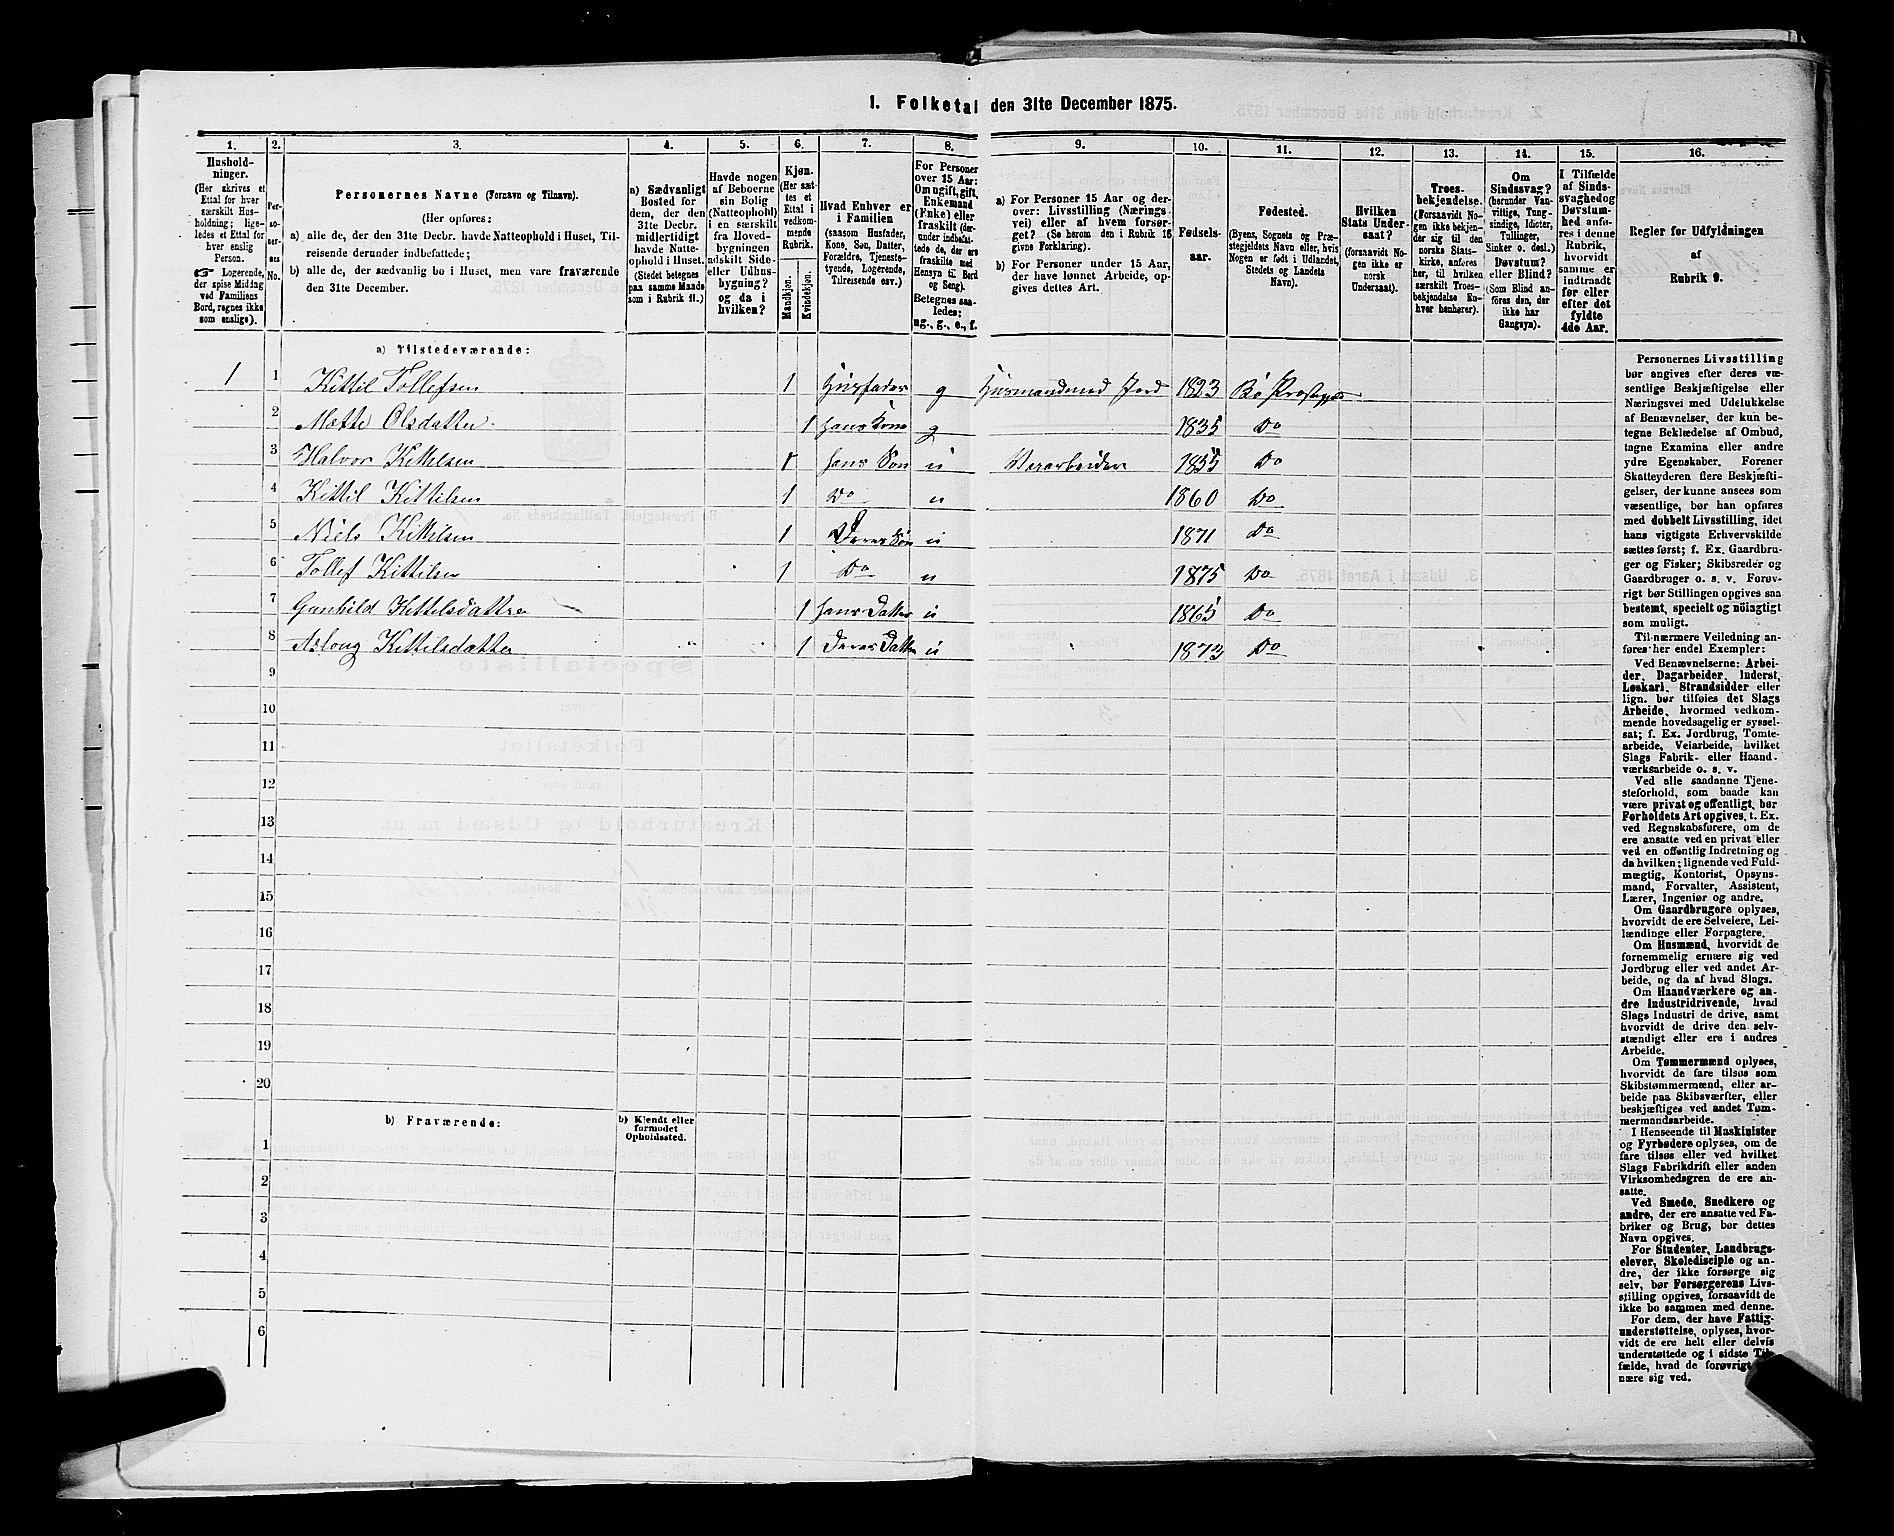 1. Folketal den 31te December 1875.
1. 2. 3. 4. 5. 6. 7. 8. 9. 10. 11. 12. 13. 14. 15. 16.
Hushold-
ninger.
(Her skrives et
Ettal for hver
særskilt Hus-
holdning; lige-
ledes et Ettal for
hver enslig
Person.
☞ Logerende,
der spise Middag
ved Familiens
Bord, regnes ikke
som enslige).
Per-
so-
ner-
nes
No.
Personernes Navne (Fornavn og Tilnavn).
(Her opføres:
a) alle de, der den 31te Decbr. havde Natteophold i Huset, Til-
reisende derunder indbefattede;
b) alle de, der sædvanlig bo i Huset, men vare fraværende
den 31te December.
a) Sædvanligt
Bosted for
dem, der den
31te Decbr.
midlertidigt
havde Natte-
ophold i Huset.
(Stedet betegnes
paa samme Maade
som i Rubrik 11.)
Havde nogen
af Beboerne
sin Bolig
(Natteophohl)
i en særskilt
fra Hoved-
bygningen
adskilt Side-
eller Udhus-
bygning?
og da i
hvilken?
Kjøn.
(Her sæt-
tes et
Ettal i
vedkom-
mende
Rubrik.
Mandkjøn.
Kvindekjøn.
Hvad Enhver er
i Familien
(saasom Husfader,
Kone, Søn, Datter,
Forældre, Tjeneste-
tyende, Logerende,
Tilreisende osv.)
For Personer
over 15 Aar:
Om ugift, gift,
Enkemand
(Enke) eller
fraskilt (der-
under indbefat-
tede de, der ere
fraskilte med
Hensyn til Bord
og Seng).
Betegnes saa-
ledes:
ug., g., e., f.
a) For Personer 15 Aar og der-
over: Livsstilling (Nærings-
vei) eller af hvem forsør-
get? (Se herom den i Rubrik 16
givne Forklaring).
b) For Personer under 15 Aar,
der have lønnet Arbeide, op-
gives dettes Art.
Fødsels-
aar.
Fødested.
(Byens, Sognets og Præ-
stegjeldets Navn eller, hvis
Nogen er født i Udlandet,
Stedets og Landets
Navn).
Hvilken
Stats Under-
saat?
(forsaavidt No-
gen ikke er
norsk
Undersaat).
Troes-
bekjendelse.
(Forsaavidt No-
gen ikke bekjen-
der sig til den
norske Stats-
kirke, anføres
her, til hvilken
særskilt Troes-
bekjendelse En-
hver henhører).
Om
Sindssvag?
(herunder Van-
vittige, Tung-
sindige, Idioter,
Tullinger,
Sinker o. desl.)
Døvstum?
eller Blind?
(Som Blind an-
føres den, der
ikke har
Gangsyn).
I Tilfælde
af Sinds-
svaghed og
Døvstum-
hed anfø-
res i denne
Rubrik,
hvorvidt
samme er
indtraadt
før eller
efter det
fyldte
4de Aar.
Regler for Udfyldningen
af
Rubrik 9.
a) Tilstedeværende:
1 1 Kittil Tollefsen 1 Husfader g Husmand med Jord 1823 Bø
2 Mette Olsdatter 1 hans Kone g 1835 Do
3 Halvor Kittilsen 1 hans Søn u 1855 Do
4 Kittil Kittilsen 1 Do u 1860 Do
5 Niels Kittilsen 1 Deres Søn u 1871 Do
6 Tollef Kittilsen 1 Do u 1875 Do
7 Gunhild Kittilsdattre 1 hans Datter u 1865 Do
8 Aslong Kittilsdatter 1 Deres Datter u 1873 Do
9
10
11
12
13
14
15
16
17
18
19
20
b) Fraværende:
b) Kjendt eller
formodet
Opholdssted.
1
2
3
4
5
6
Personernes Livsstilling
bør angives efter deres væ-
sentlige Beskjæftigelse eller
Næringsvei med Udelukkelse
af Benævnelser, der kun be-
tegne Beklædelse af Ombud,
tagne Examina eller andre
ydre Egenskaber. Forener
Skatteyderen flere Beskjæfti-
gelser, der kunne ansees som
væsentlige, bør han opføres
med dobbelt Livsstilling, idet
hans vigtigste Erhvervskilde
sættes først; f. Ex. Gaardbru-
ger og Fisker; Skibsreder og
Gaardbruger o. s. v. Forøv-
rigt bør Stillingen opgives saa
bestemt, specielt og nøiagtigt
som muligt.
Til nærmere Veiledning an-
føres her endel Exempler:
Ved Benævnelserne: Arbei-
der, Dagarbeider, Inderst,
Løskarl, Strandsidder eller
lign. bør tilføies det Slags
Arbeide, hvormed vedkom-
mende hovedsagelig er syssel-
sat; f. Ex. Jordbrug, Tomte-
arbeide, Veiarbeide, hvilket
Slags Fabrik- eller Haand-
værksarbeide o. s. v.
Ved alle saadanne Tjene-
steforhold, som baade kan
være privat og offentligt, bør
Forholdets Art opgives, t. Ex.
ved Regnskabsførere, om de
ere ansatte ved en privat eller
ved en offentlig Indretning og
da hvilken; lignende ved Fuld-
mægtig, Kontorist, Opsyns-
mand, Forvalter, Assistent,
Lærer, Ingeniør og andre.
Om Gaardbrugere oplyses,
hvorvidt de ere Selveiere, Lei-
lændinge eller Forpagtere.
Om Husmænd, hvorvidt de
fornemmelig ernære sig ved
Jordbrug eller ved andet Ar-
beide, og da af hvad Slags.
Om Haandværkere og an-
dre Industridrivende, hvad
Slags Industri de drive, samt
hvorvidt de drive den selv-
stændigt eller ere i andres
Arbeide.
Om Tømmermænd oplyses,
hvorvidt de fare tilsøs som
Skibstømmermænd, eller ar-
beide paa Skibsværfter, eller
beskjæftiges ved andet Tøm-
mermandsarbeide.
I Henseende til Maskinister
og Fyrbødere oplyses, om de
fare tilsøs eller ved hvilket
Slags Fabrikdrift eller anden
Virksomhedsgren de ere an-
satte.
Ved Smede, Snedkere og
andre, der ere ansatte ved Fa-
briker og Brug, bør dettes
Navn opgives.
For Studenter, Landbrugs-
elever, Skoledisciple og an-
dre, der ikke forsørge sig
selv, bør Forsørgerens Livs-
stilling opgives, forsaavidt de
ikke bo sammen med denne.
For dem, der have Fattig-
understøttelse, oplyses, hvor-
vidt de ere helt eller delvis
understøttede og i sidste Til-
fælde, hvad de forøvrigt
nære sig ved.